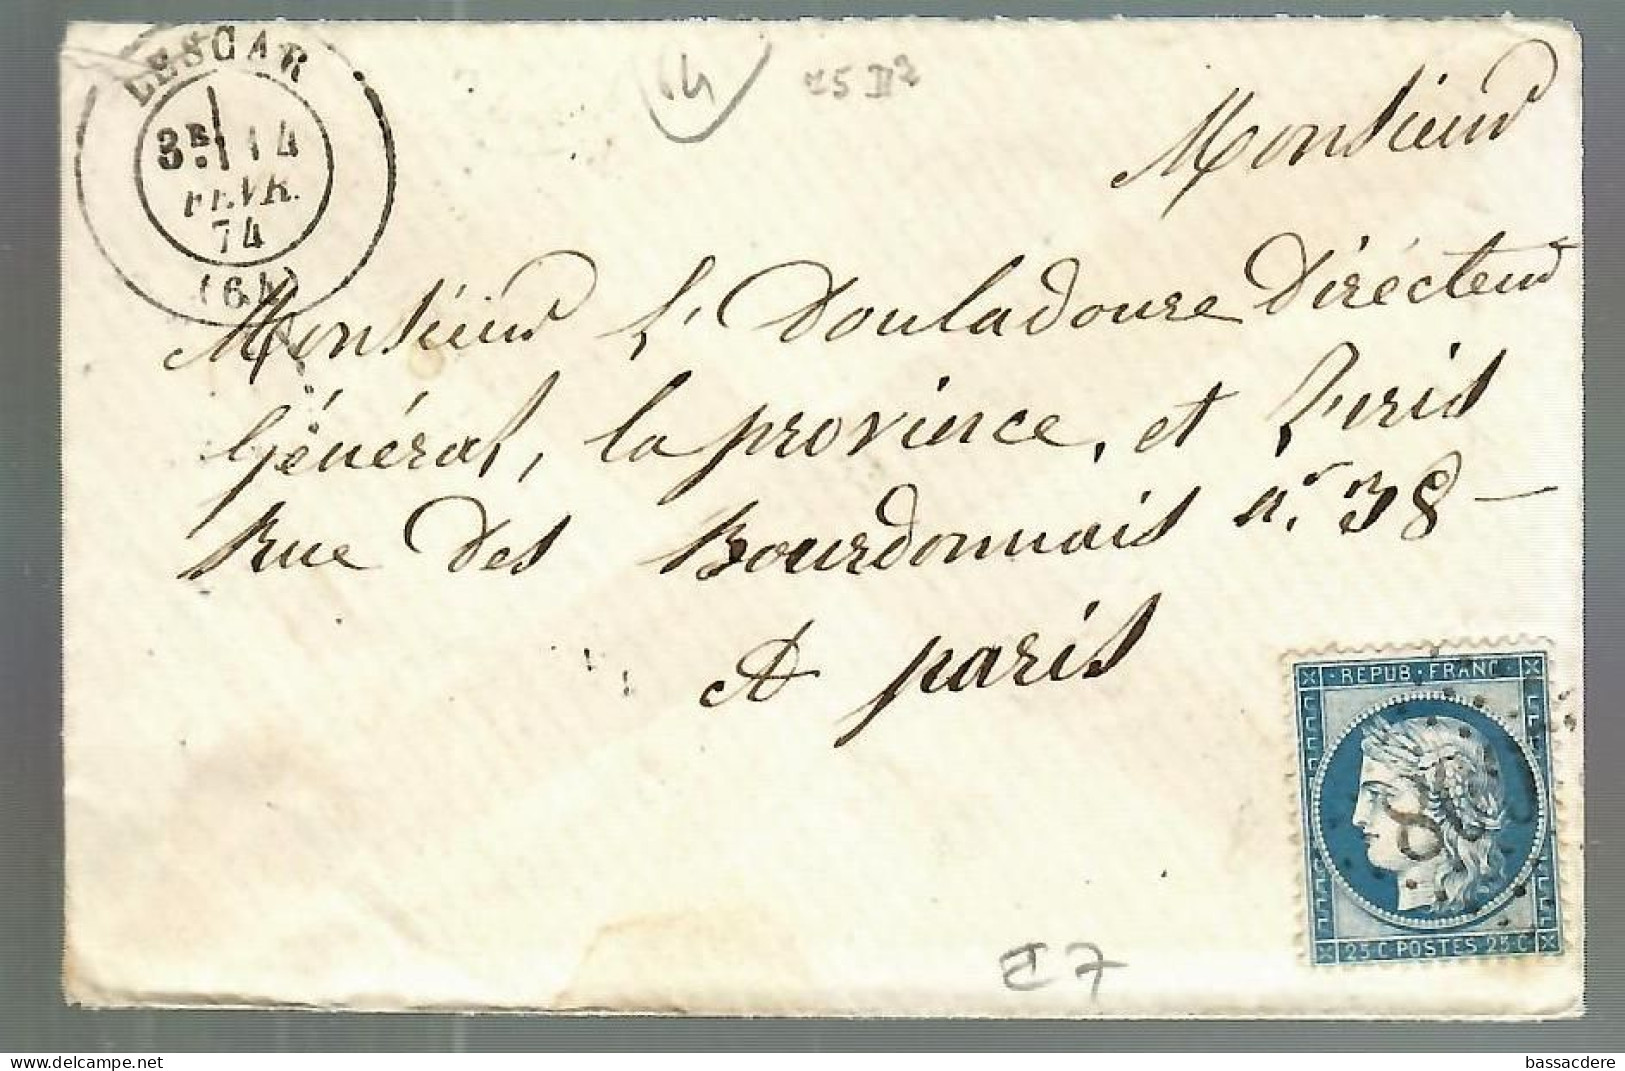 LESCAR
3E 14
FEVR.
74
(64)
64
25 II 2
Monsieur
Monsieur L'Douladoure Directeur
Général, la province, et Paris
Rue des Bourdonnais n° 38 -
A paris
REPUB·FRANC
25 C POSTES 25 C
E7
delcampe.net
bassacdere